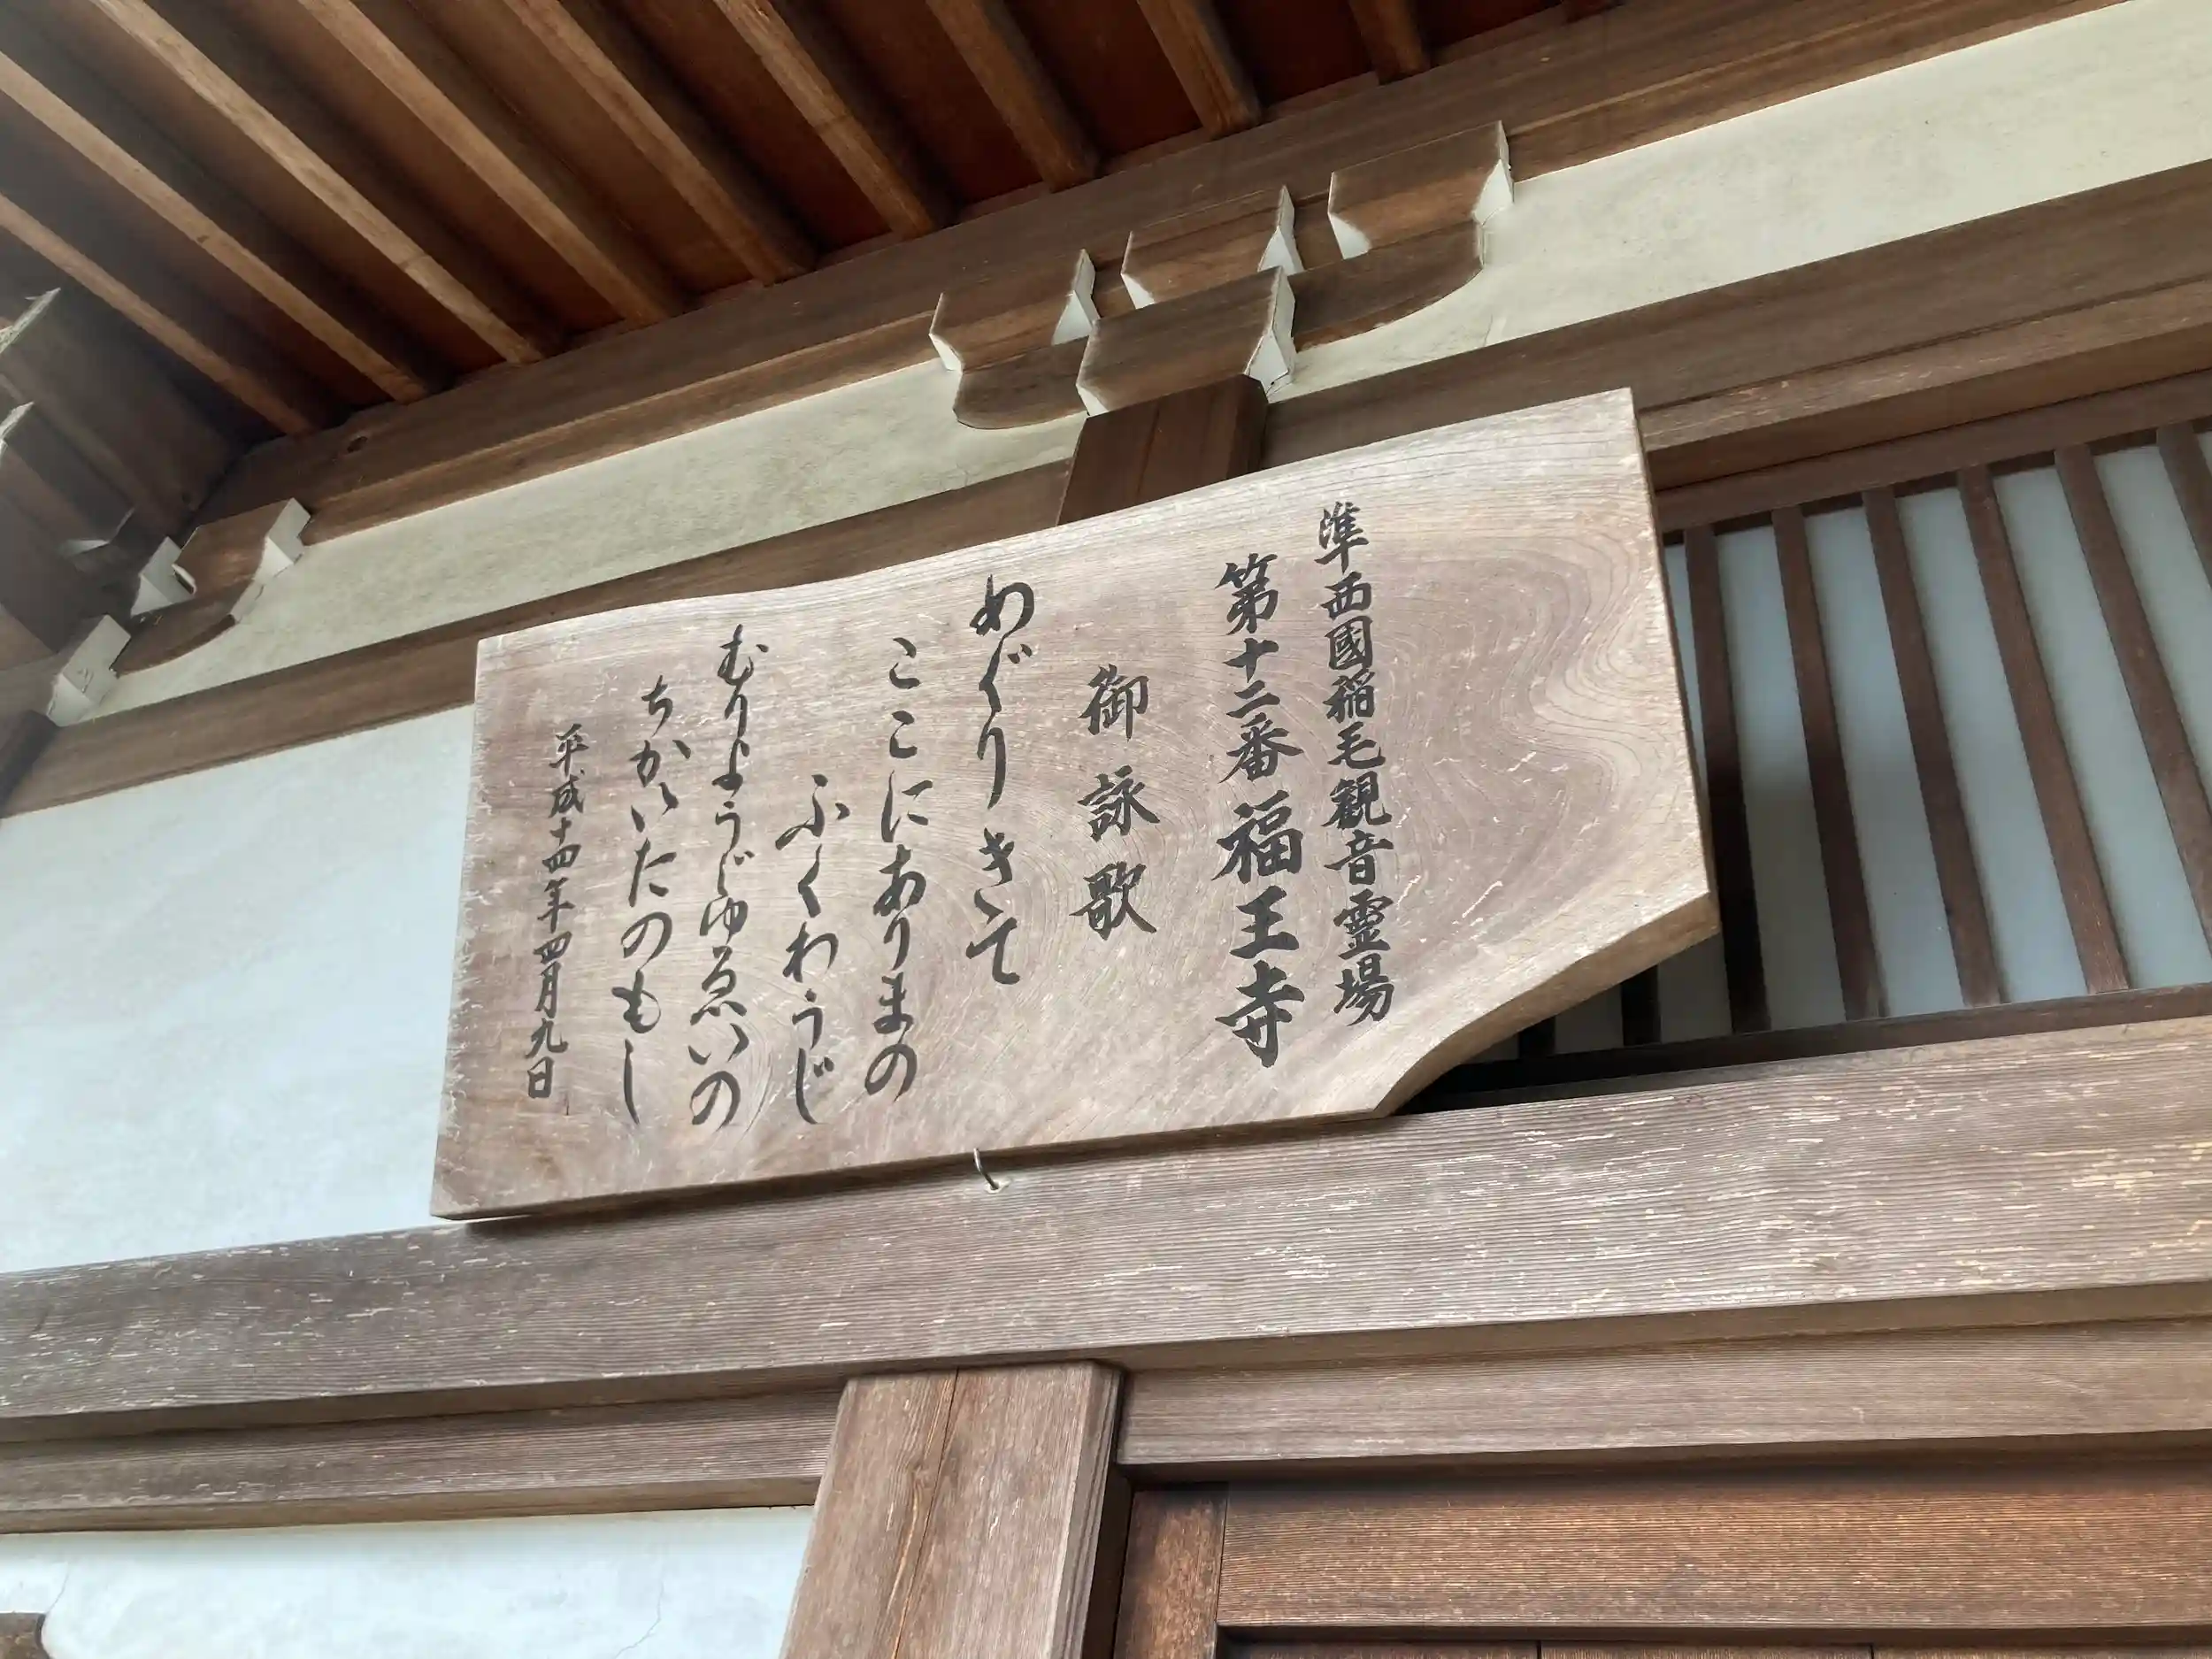 準西國稲毛観音霊場
第十二番福王寺
御詠歌
めぐりきて
ここにありまの
ふくわうじ
むりようじゆゑいの
ちかいたのもし
平成十四年四月九日